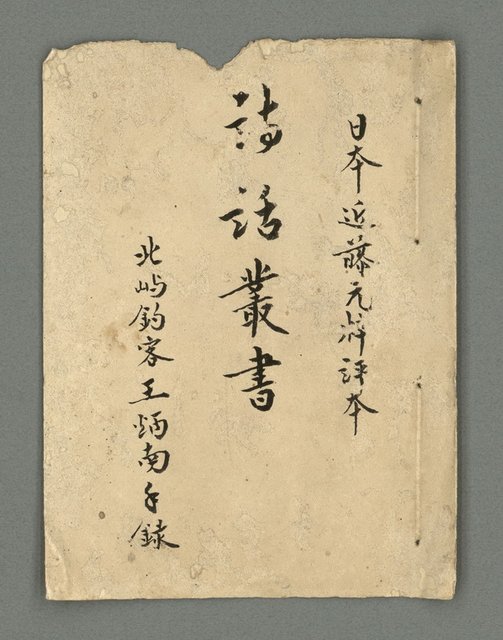 日本近藤元粹評本
詩話叢書
北嶼釣客王炳南手錄